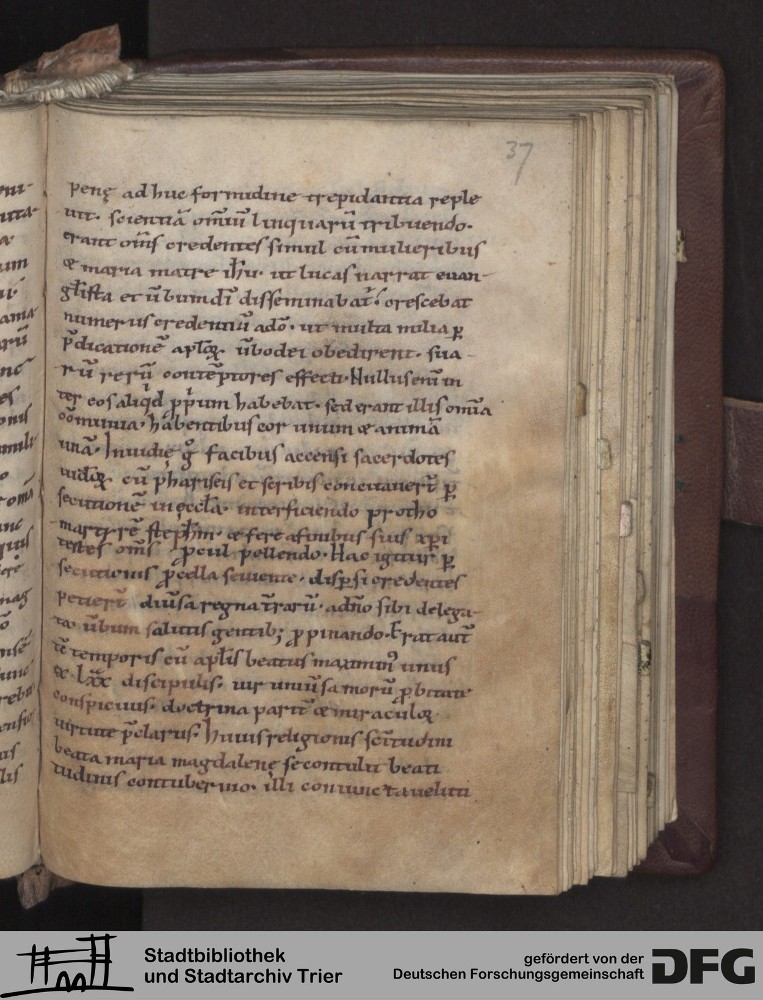 37
penę ad huc formidine trepidantia reple
uit· scientiā om̄iū linquarū tribuendo·
erant om̄s credentes simul cū mulieribus
& maria matre ih̄u· ut lucas narrat euan-
gl̄ista et ūbum dī disseminabat᷑· crescebat
numerus credentiū adō· ut multa milia ꝑ
p̄dicationē aplōꝝ ūbo dei obedirent· sua-
rū rerū contēptores effecti· Nullus enī in
ter eos aliqd ꝓprium habebat· sed erant illis omīa
cōmunia· habentibus cor unum & animā
unā· Inuidię g̊ facibus accensi sacerdotes
iudōꝝ cū phariseis et scribis concitauer̄t ꝑ
secutionē in ęccl̄a· interficiendo protho
martyrē steph̄m· & fere a finibus suis xp̄i
testes om̄s ꝓcul pellendo· Hac igitur ꝑ
secutionis ꝓcella seuiente· disꝑsi credentes
petier̄t diūsa regna t̄rarū· a dn̄o sibi delega-
ta· ūbum salutis gentib; ꝓpinando· Erat aut̄
tc̄ temporis cū apl̄is beatus maximin᷒ unus
ex· lxx discipulis· uir uniūsa morū ꝓbitate
conspicuus· doctrina parit̄ & miraculoꝝ
uirtute p̄clarus· huius religionis sc̄itudini
beata maria magdalenę se contulit beati
tudinis contubernio· illi coniuncta ueluti
Stadtbibliothek
und Stadtarchiv Trier
gefördert von der
Deutschen Forschungsgemeinschaft
DFG